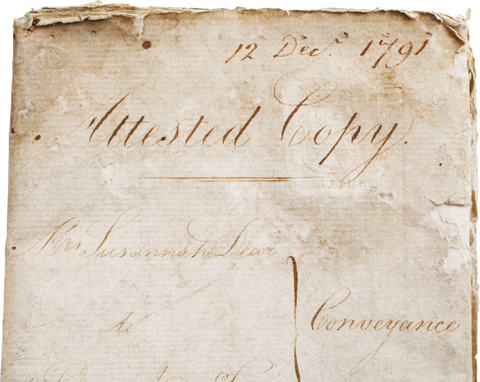 12 Decr. 1791
Attested Copy.
Mrs Susannah Lear
to
Conveyance